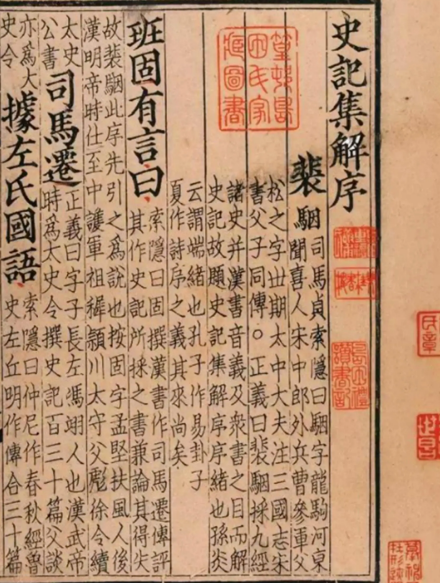 史記集解序
篁邨島
田氏家
藏圖書
裴駰
司馬貞索隱曰駰字龍駒河東
聞喜人宋中郎外兵曹參軍父
松之字丗期太中大夫注三國志宋
書父子同傳○正義曰裴駰採九經
諸史并漢書音義及衆書之目而解
史記故題史記集解序序緒也孫炎
云謂端緒也孔子作易卦子
夏作詩序之義其來尚矣
班固有言曰
索隱曰固撰漢書作司馬遷傳評
其作史記所採之書兼論其得失
故裴駰此序先引之爲說也按固字孟堅扶風人後
漢明帝時仕至中護軍祖穉潁川太守父彪徐令續
太史
公書
司馬遷
正義曰字子長左馮翊人也漢武帝
時爲太史令撰史記百三十篇父談
亦爲大
史令
據左氏國語
索隱曰仲尼作春秋經魯
史左丘明作傳合三十篇
氏章